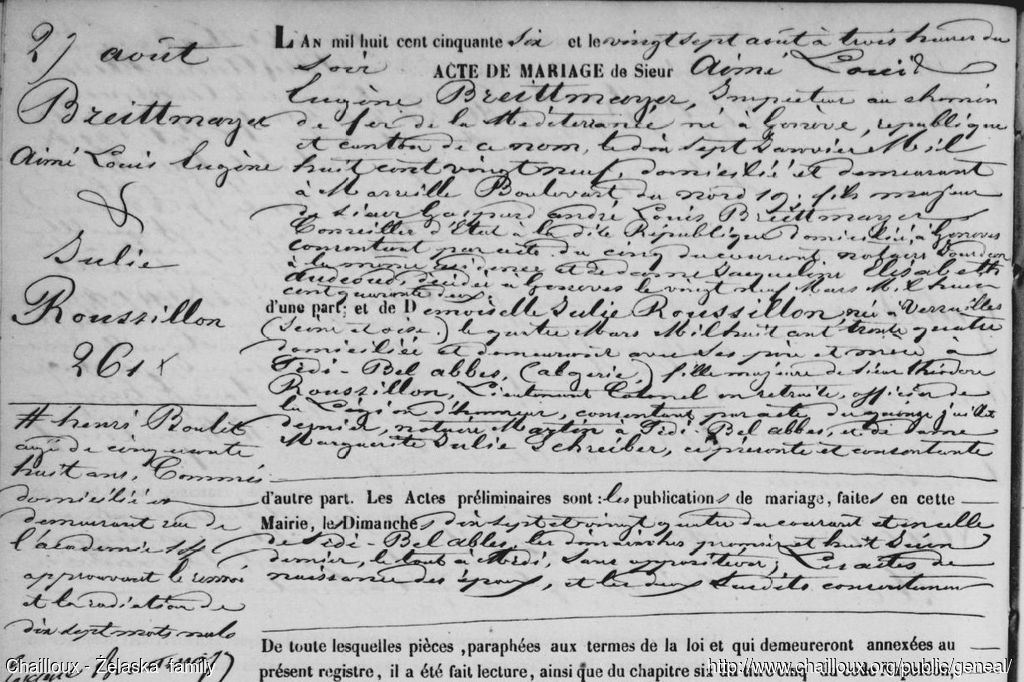 27 août
Breittmayer
Aimé Louis Eugène
&
Julie
Roussillon
261
# henri Boulet
agé de cinquante
huit ans, Commis
domicilié et
demeurant rue de
l'académie
approuvant le renvoi
et la radiation de
dix sept mots nuls
L'AN mil huit cent cinquante six et le vingt sept août à trois heures du
soir ACTE DE MARIAGE de Sieur Aimé Louis
Eugène Breittmayer, Inspecteur au chemin
de fer de la Méditerranée né à Genève, république
et canton de ce nom, le dix sept Janvier Mil
huit cent vingt neuf, domicilié et demeurant
à Marseille Boulevart du nord 19; fils majeur
de sieur Gaspard andré Louis Breittmayer
Conseiller d'Etat à la dite République domicilié, à Genève
consentant par acte du cinq du courant, notaire
à la même résidence et de dame Jacqueline Elisabeth
Audeoud, décédée à Genève le vingt neuf Mars Mil huit
cent quarante deux
d'une part; et de Demoiselle Julie Roussillon née à Versailles
(Seine et oise) le quatre Mars Mil huit cent trente quatre
domiciliée et demeurant avec ses père et mère à
Sidi-Bel abbes, (algérie,) fille majeure de sieur théodore
Roussillon, Lieutenant Colonel en retraite, officier de
la Légion d'honneur, consentant par acte du quinze juillet
dernier, notaire Martin à Sidi-Bel abbes, et de dame
Marguerite Julie Schreiber, ci présente et consentante
d'autre part. Les Actes préliminaires sont: les publications de mariage, faites en cette
Mairie, les Dimanches dix sept et vingt quatre du courant et en celle
de Sidi-Bel abbes, les dimanches premier et huit Juin
dernier, le tout à Midi, sans opposition; Les actes de
naissance des époux, et les deux susdits consentemens
De toute lesquelles pièces, paraphées aux termes de la loi et qui demeureront annexées au
présent registre, il a été fait lecture, ainsi que du chapitre six du titre cinq du code Napoléon,
Chailloux - Żelaska family
http://www.chailloux.org/public/geneal/